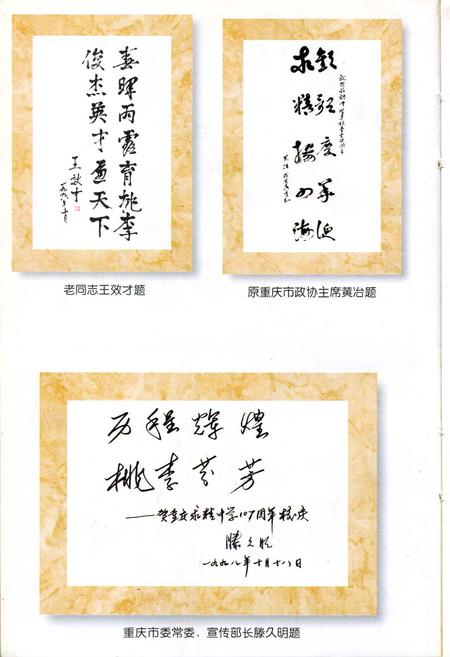 春晖雨露育桃李
俊杰英才尽天下
王效才
一九九八年十月
老同志王效才题
求精
海
原重庆市政协主席黄冶题
历程辉煌
桃李芬芳
——贺重庆求精中学107周年校庆
滕久明
一九九八年十月十八日
重庆市委常委、宣传部长滕久明题